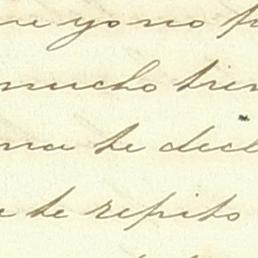 ue yo no p
mucho tien
na te decl
e te repito